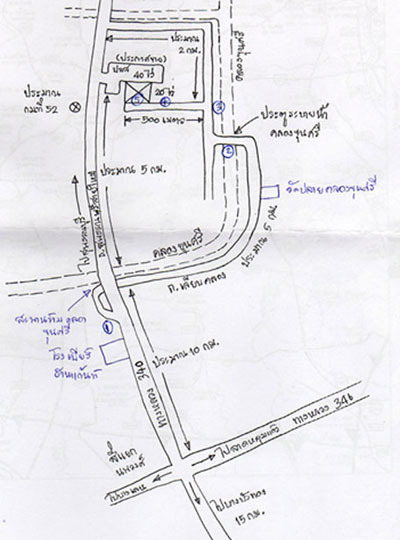 (ประกาศขาย)
ประมาณ
2 กม.
40 ไร่
20 ไร่
5
4
3
500 เมตร
ประมาณ
กม.ที่ 52
ประตูระบายน้ำ
คลองขุนศรี
2
ประมาณ 5 กม.
วัดปลายคลองขุนศรี
ประมาณ 5 กม.
คลองขุนศรี
ถ.เลียบคลอง
ขุนศรี
1
ประมาณ 10 กม.
ทางหลวง 340
ทางหลวง 346
ไปลาดหลุมแก้ว
สี่แยก
นพวงศ์
ไปบางเลน
ไปบางบัวทอง
15 กม.